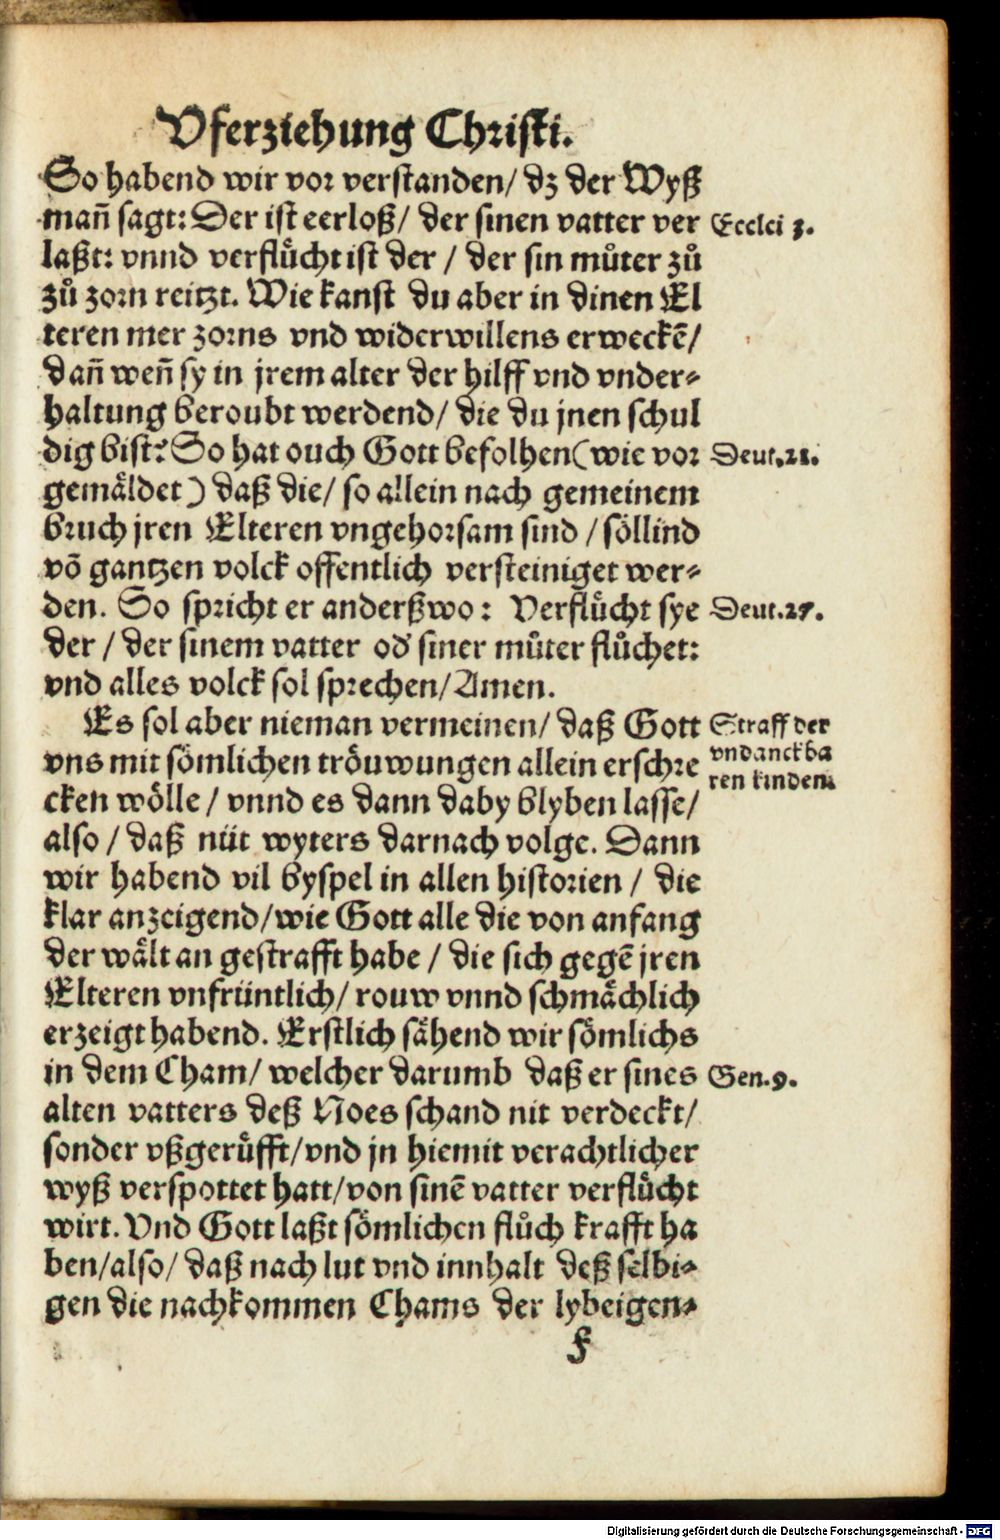 Vferziehung Christi.
So habend wir vor verstanden/ dz der Wyß
mañ sagt: Der ist eerloß/ der sinen vatter ver
Eccleſi 3.
laßt: vnnd verflůcht ist der / der sin můter zů
zů zorn reitzt. Wie kanst du aber in dinen El
teren mer zorns vnd widerwillens erweckẽ/
dañ weñ sy in jrem alter der hilff vnd vnder⸗
haltung beroubt werdend/ die du jnen schul
dig bist? So hat ouch Gott befolhen (wie vor
Deut.21.
gemåldet) daß die/ so allein nach gemeinem
bruch jren Elteren vngehorsam sind / söllind
võ gantzen volck offentlich versteiniget wer⸗
den. So spricht er anderßwo: Verflůcht sye
Deut.27.
der / der sinem vatter od̓ siner můter flůchet:
vnd alles volck sol sprechen/ Amen.
Es sol aber nieman vermeinen/ daß Gott
Straff der
vndanckba
ren kinden.
vns mit sömlichen tröuwungen allein erschre
cken wölle / vnnd es dann daby blyben lasse/
also / daß nüt wyters darnach volge. Dann
wir habend vil byspel in allen historien / die
klar anzeigend/ wie Gott alle die von anfang
der wålt an gestrafft habe / die sich gegẽ jren
Elteren vnfrüntlich/ rouw vnnd schmåchlich
erzeigt habend. Erstlich såhend wir sömlichs
in dem Cham/ welcher darumb daß er sines
Gen.9.
alten vatters deß Noes schand nit verdeckt/
sonder vßgerůfft/ vnd jn hiemit verachtlicher
wyß verspottet hatt/ von sinẽ vatter verflůcht
wirt. Vnd Gott laßt sömlichen flůch krafft ha
ben/ also/ daß nach lut vnd innhalt deß selbi⸗
gen die nachkommen Chams der lybeigen⸗
f
Digitalisierung gefördert durch die Deutsche Forschungsgemeinschaft - DFG